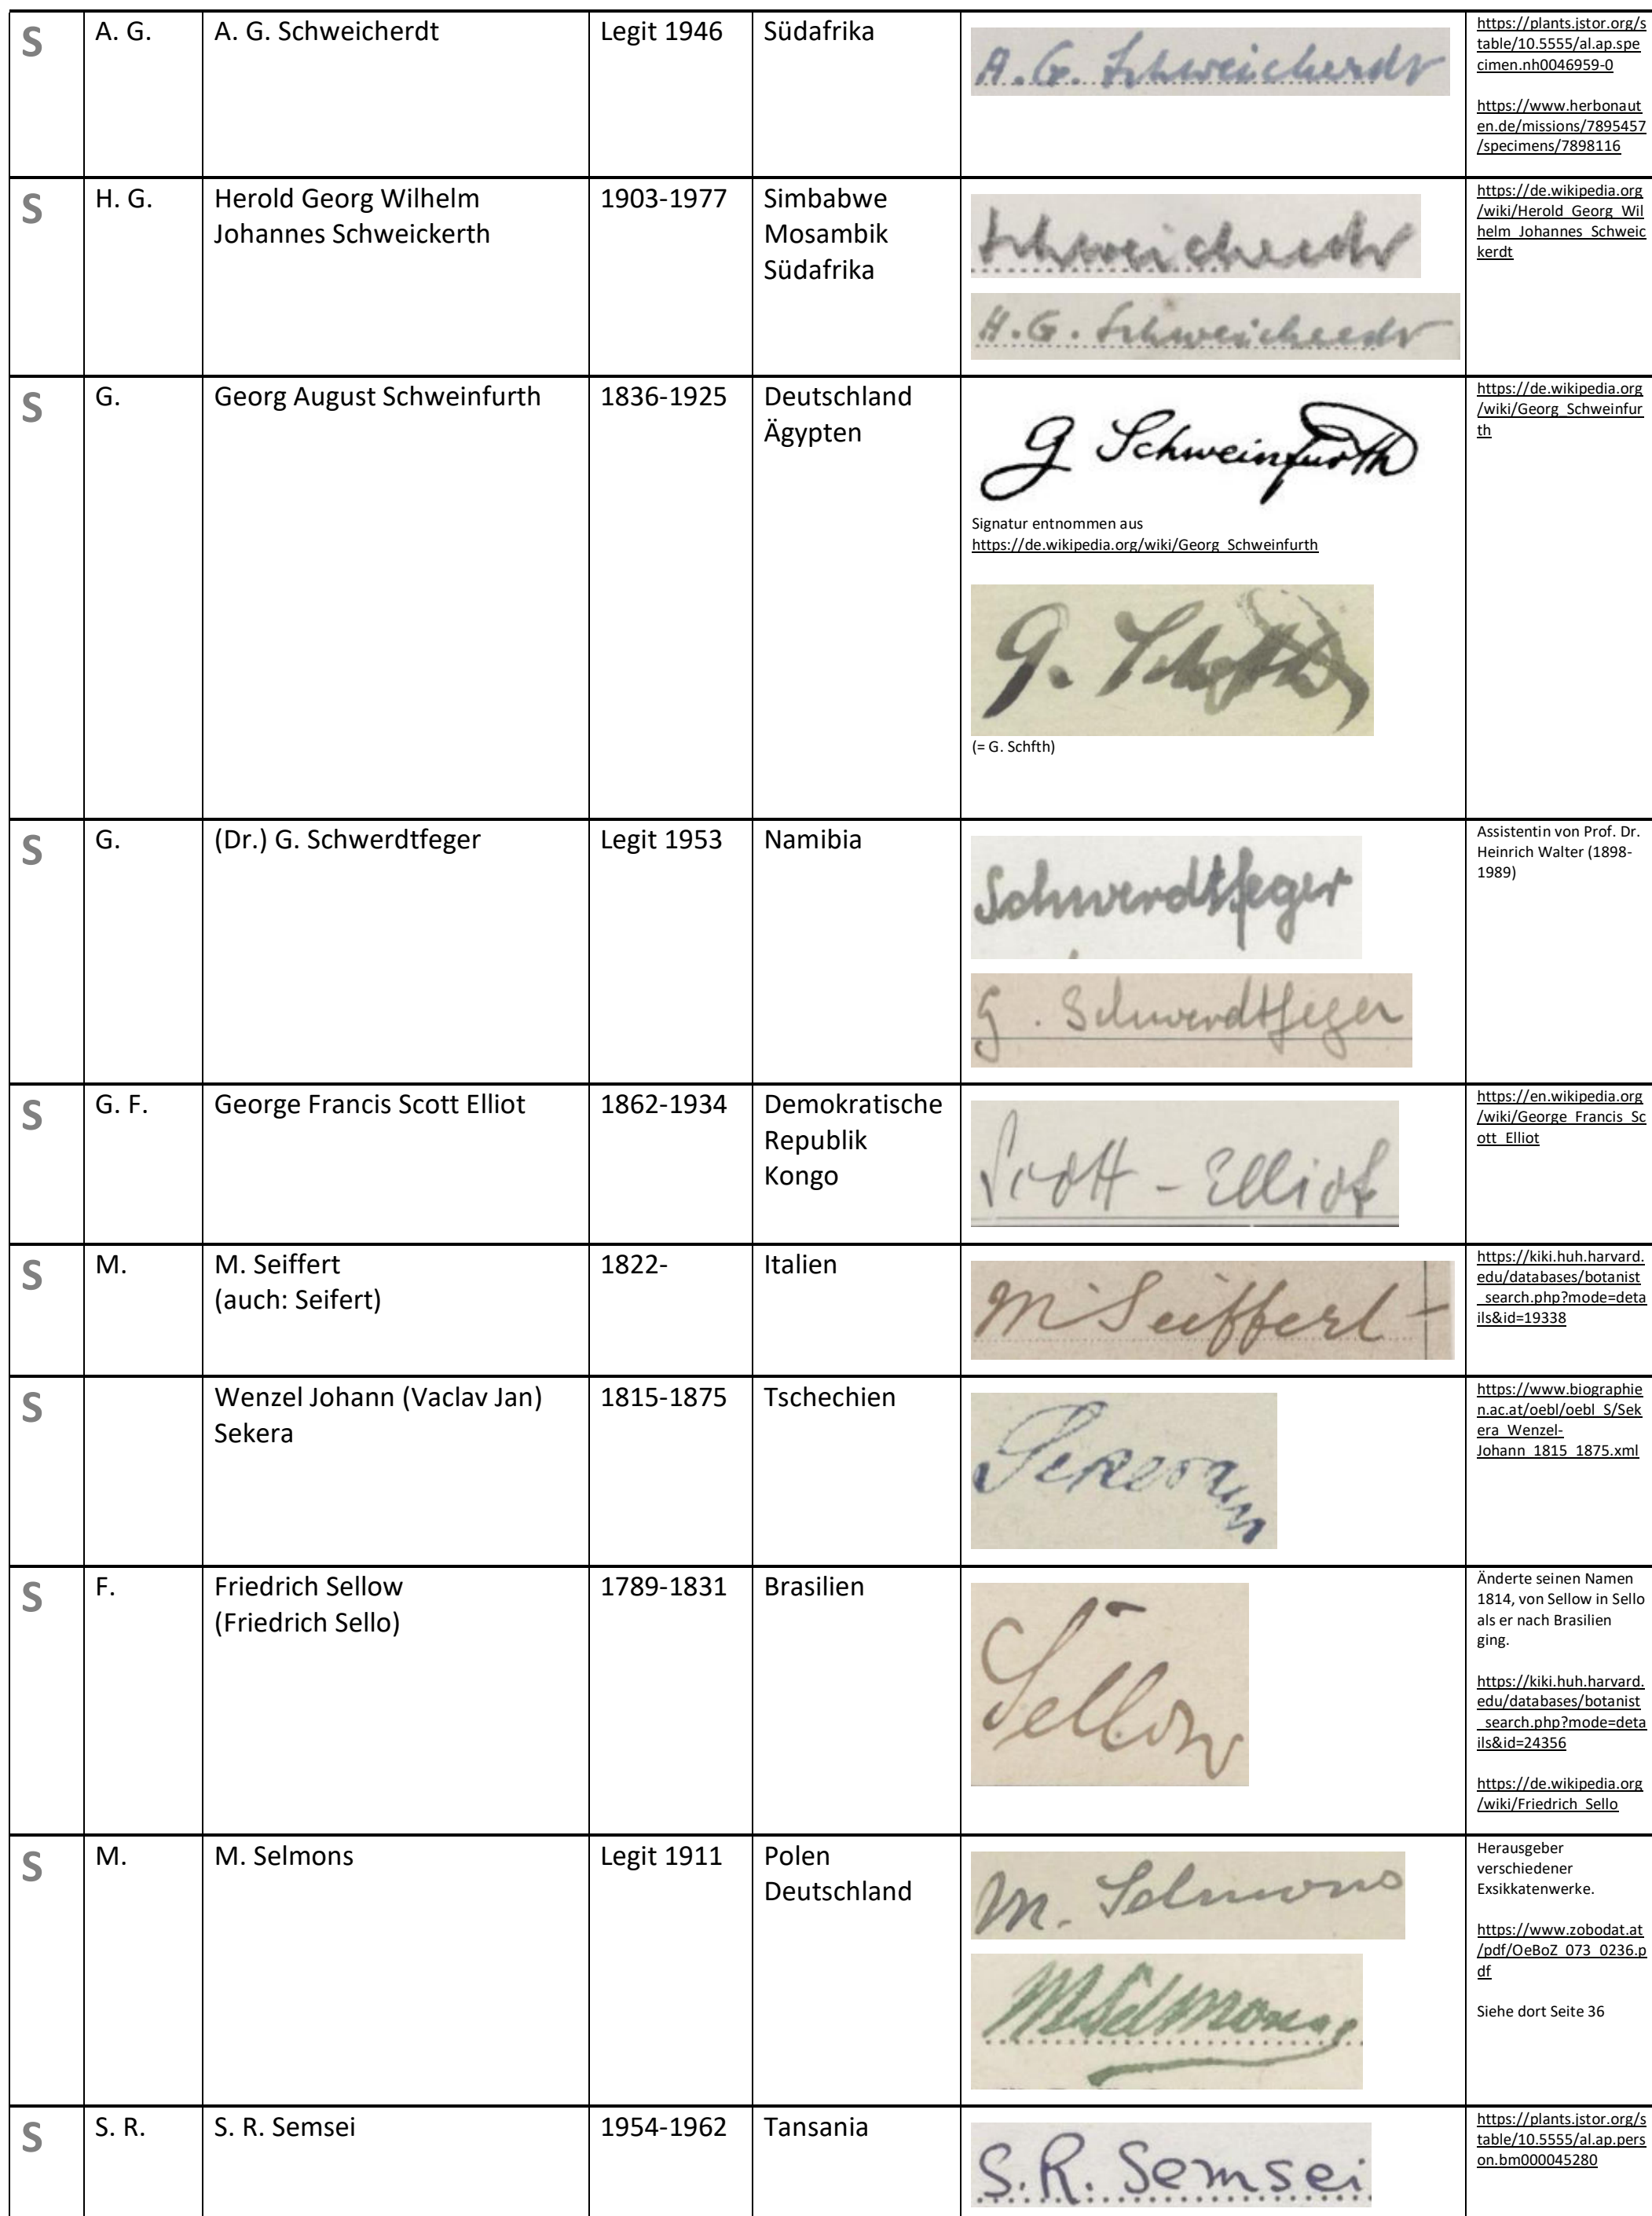 S
A. G.
A. G. Schweicherdt
Legit 1946
Südafrika
A. G. Schweicherdt
https://plants.jstor.org/s
table/10.5555/al.ap.spe
cimen.nh0046959-0
https://www.herbonaut
en.de/missions/7895457
/specimens/7898116
S
H. G.
Herold Georg Wilhelm
Johannes Schweickerth
1903-1977
Simbabwe
Mosambik
Südafrika
Schweickerdt
H. G. Schweickerdt
https://de.wikipedia.org
/wiki/Herold_Georg_Wil
helm_Johannes_Schweic
kerdt
S
G.
Georg August Schweinfurth
1836-1925
Deutschland
Ägypten
G Schweinfurth
Signatur entnommen aus
https://de.wikipedia.org/wiki/Georg_Schweinfurth
G. Schfth
(= G. Schfth)
https://de.wikipedia.org
/wiki/Georg_Schweinfur
th
S
G.
(Dr.) G. Schwerdtfeger
Legit 1953
Namibia
Schwerdtfeger
G. Schwerdtfeger
Assistentin von Prof. Dr.
Heinrich Walter (1898-
1989)
S
G. F.
George Francis Scott Elliot
1862-1934
Demokratische
Republik
Kongo
Scott - Elliot
https://en.wikipedia.org
/wiki/George_Francis_Sc
ott_Elliot
S
M.
M. Seiffert
(auch: Seifert)
1822-
Italien
M Seiffert
https://kiki.huh.harvard.
edu/databases/botanist
_search.php?mode=deta
ils&id=19338
S
Wenzel Johann (Vaclav Jan)
Sekera
1815-1875
Tschechien
Sekera
https://www.biographie
n.ac.at/oebl/oebl_S/Sek
era_Wenzel-
Johann_1815_1875.xml
S
F.
Friedrich Sellow
(Friedrich Sello)
1789-1831
Brasilien
Sellow
Änderte seinen Namen
1814, von Sellow in Sello
als er nach Brasilien
ging.
https://kiki.huh.harvard.
edu/databases/botanist
_search.php?mode=deta
ils&id=24356
https://de.wikipedia.org
/wiki/Friedrich_Sello
S
M.
M. Selmons
Legit 1911
Polen
Deutschland
M. Selmons
M Selmons
Herausgeber
verschiedener
Exsikkatenwerke.
https://www.zobodat.at
/pdf/OeBoZ_073_0236.p
df
Siehe dort Seite 36
S
S. R.
S. R. Semsei
1954-1962
Tansania
S. R. Semsei
https://plants.jstor.org/s
table/10.5555/al.ap.pers
on.bm000045280